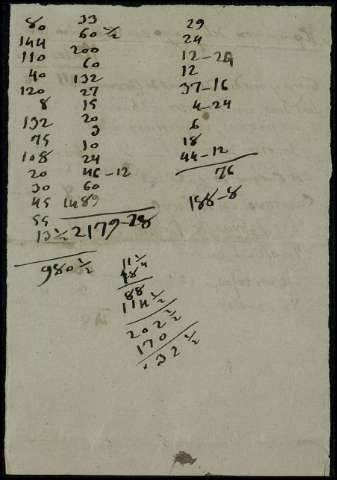 80
144
110
40
120
8
132
75
108
20
30
45
55
13 ½
980 ½
33
60 ½
200
60
132
27
15
20
3
10
24
46-12
60
1489
2179-28
29
24
12-24
12
37-16
4-24
6
18
44-12
76
188-8
88
114 ½
202 ½
170
32 ½